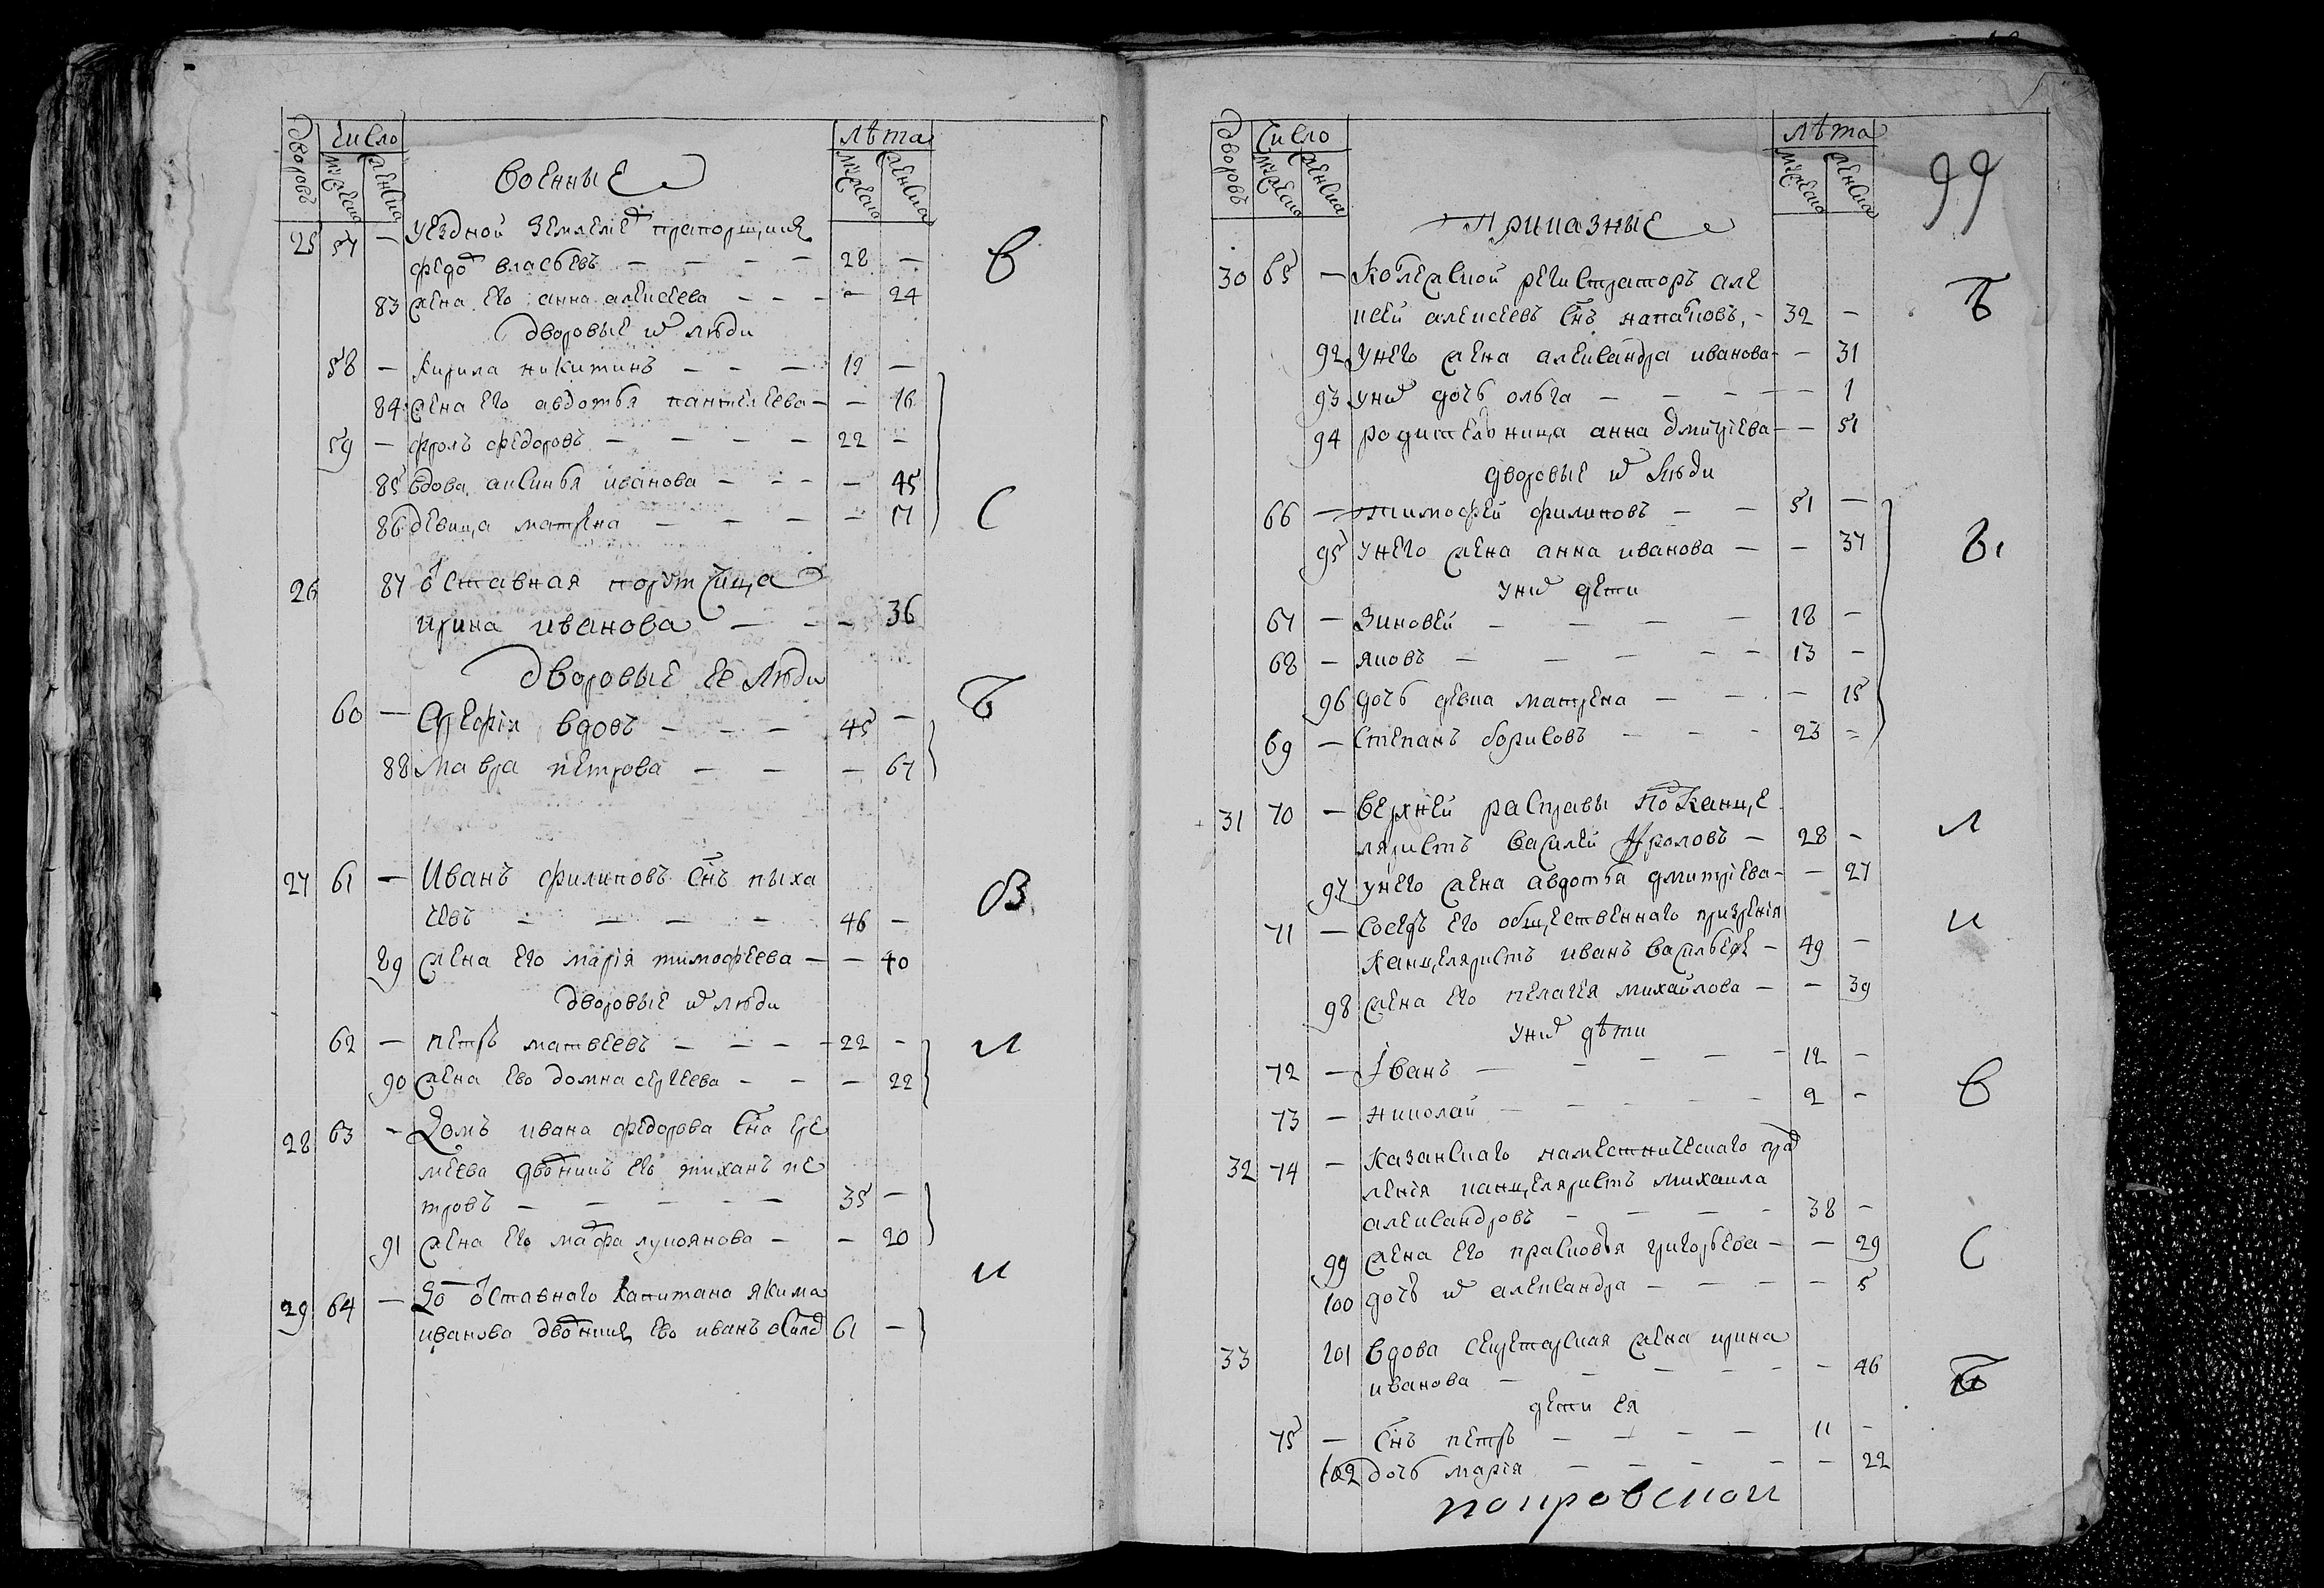 дворовъ
число
мужеска
женска
военные
лѣта
мужеска
женска
25 57 — уездной землемеръ прапорщикъ
федоръ власьевъ — — — — 28 —
83 жена его анна алексеева — — — — 24
дворовые их люди
58 — кирила никитинъ — — — 19 —
84 жена его авдотья пантелеева — — 16
59 — фролъ федоровъ — — — — 22 —
85 вдова аксинья иванова — — — — 45
86 девица матрена — — — — 17
26 87 отставная порутчица
ирина иванова — — — 36
дворовые ее люди
60 — Арефiй вдовъ — — — 45 —
88 Мавра петрова — — — 67
27 61 — Иванъ филиповъ снъ пыха
чевъ — — — — 46 —
89 жена его марiя тимофеева — — 40
дворовые их люди
62 — петръ матвеевъ — — — 22 —
90 жена ево домна сергеева — — — 22
28 63 — Домъ ивана федорова сна ере
меева дворникъ его тиханъ пе
тровъ — — — — — 35 —
91 жена его марфа лукоянова — — 20
29 64 — До отставнаго капитана якима
иванова дворникъ ево иванъ 61 —
В
С
Ъ
В
И
и
дворовъ
число
мужеска
женска
лѣта
мужеска
женска
99
Приказные
30 65 — Колежской регистраторъ але
ксей алексеевъ снъ — 32 —
92 у него жена александра иванова — — 31
93 у них дочь ольга — — — — — 1
94 родительница анна дмитрiева — — 51
дворовые их люди
66 — тимофей филиповъ — — 51 —
95 у него жена анна иванова — — 37
у них дети
67 — Зиновей — — — — 18 —
68 — яковъ — — — — — 13 —
96 дочь девка матрена — — — 15
69 — степанъ борисовъ — — — 23 —
31 70 — Верхней расправы подканце
ляристъ василей фроловъ — 28 —
97 у него жена авдотья дмитрiева — — 27
71 — Соседъ его общественнаго призренiя
канцеляристъ иванъ васильевъ — 49 —
98 жена его пелагея михайлова — — 39
у них дѣти
72 — Иванъ — — — — — 12 —
73 — николай — — — — — 2 —
32 74 — Казанскаго наместническаго прав
ленiя канцеляристъ михаила
александровъ — — — — 38 —
99 жена его прасковья григорьева — — 29
100 дочь их александра — — — — — 5
33 101 вдова секретарская жена ирина
иванова — — — — — — 46
дети ея
75 — снъ петръ — — — — 11 —
102 дочь марiя — — — — — 22
Ъ
В
Л
и
В
С
покровской